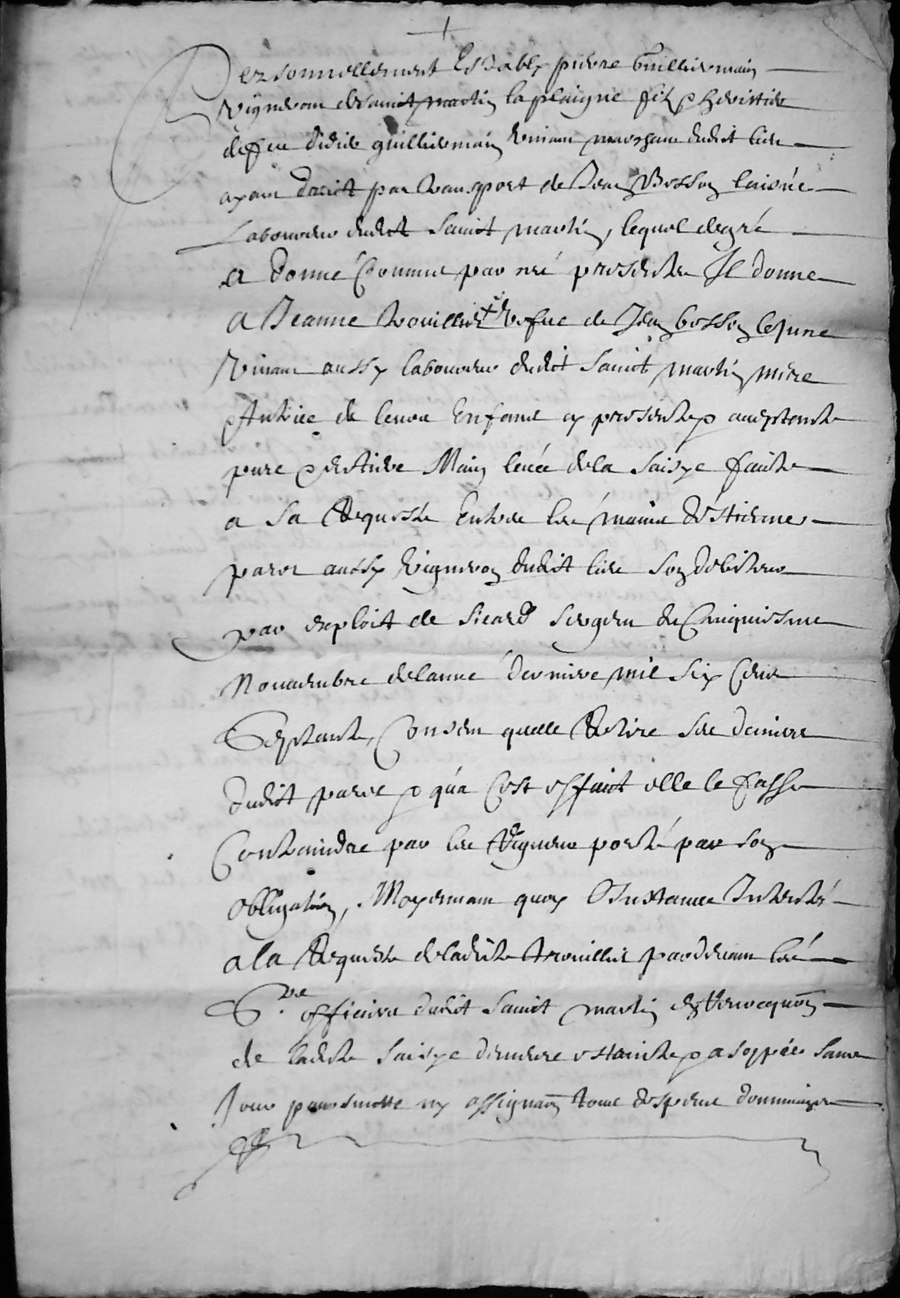 Personnellement Estably pierre Guilliermain
Vigneron de sainct martin la plaigne filz & héritier
de feu Didie guilliermain vivant marchant dudict lieu
ayant droict par transport de Jean Bosson laisné
Laboureur dudict Sainct martin, lequel de gré
a donné Comme par ces présentes Il donne
A Jeanne trouilliet vefue de Jean bosson le June
Vivant aussy laboureur dudict Sainct martin mère
tutrice de leurs Enfans cy présente & acceptante
pure & entière Main levée de la Saisye faicte
a Sa Requeste Entre les mains d'Estienne
aussy Vigneron dudict lieu son debiteur
par exploit de Sicard sergent du Cinquiesme
Novembre de l'année dernière mil six Cens
Septante, Consent quelle Retire ses deniers
dudict & qua Cest effaict elle le fasse
Contraindre par les Rigueurs porté par son
obligation, Moyennant quoy l'Instance Intenté
a la Requeste de ladicte trouilliet pardevant les
Srs officiers dudict Sainct martin en Revocquaon
de ladicte Saisye demeure estainte & assoppée sans
poursuitte ny assignaon tous despens dommaiges